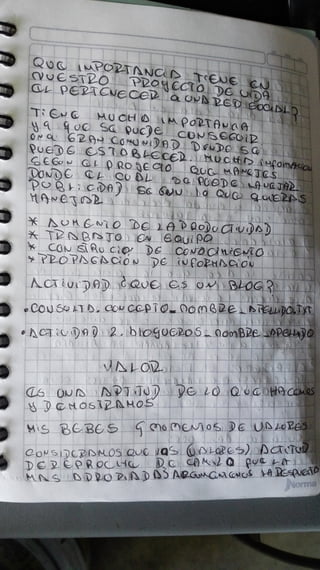 QUE IMPORTANCIA TIENE EN
NUESTRO PROYECTO DE VIDA
EL PERTENECER A UNA RED SOCIAL?
TIENE MUCHA IMPORTANCIA
YA QUE SE PUEDE CONSEGUIR
UNA GRAN COMUNIDAD DONDE SE
PUEDE ESTABLECER MUCHA INFORMACION
SEGUN EL PROYECTO QUE MANEJES
DONDE EL CUAL SE PUEDE MANEJAR
PUBLICIDAD SEGUN LO QUE QUERAS
MANEJAR
* AUMENTO DE LA PRODUCTIVIDAD
* TRABAJO EN EQUIPO
* CONSTRUCION DE CONOCIMIENTO
* PROPAGACION DE INFORMACION
ACTIVIDAD ¿QUE ES UN BLOG?
• CONSULTA_CONCEPTO_NOMBRE_APELLIDO.TXT
• ACTIVIDAD 2. blogueros_NOMBRE_APELLIDO
VALOR
ES UNA APTITUD DE LO QUE HACEMOS
Y DEMOSTRAMOS
MIS BEBES 4 MOMENTOS DE VALORES
CONSIDERAMOS QUE LOS (VALORES) ACTITUD
DE REPROCHE DE CAMILO FUE LA
MAS APROPIADA? ARGUMENTEMOS LA RESPUESTA
Norma